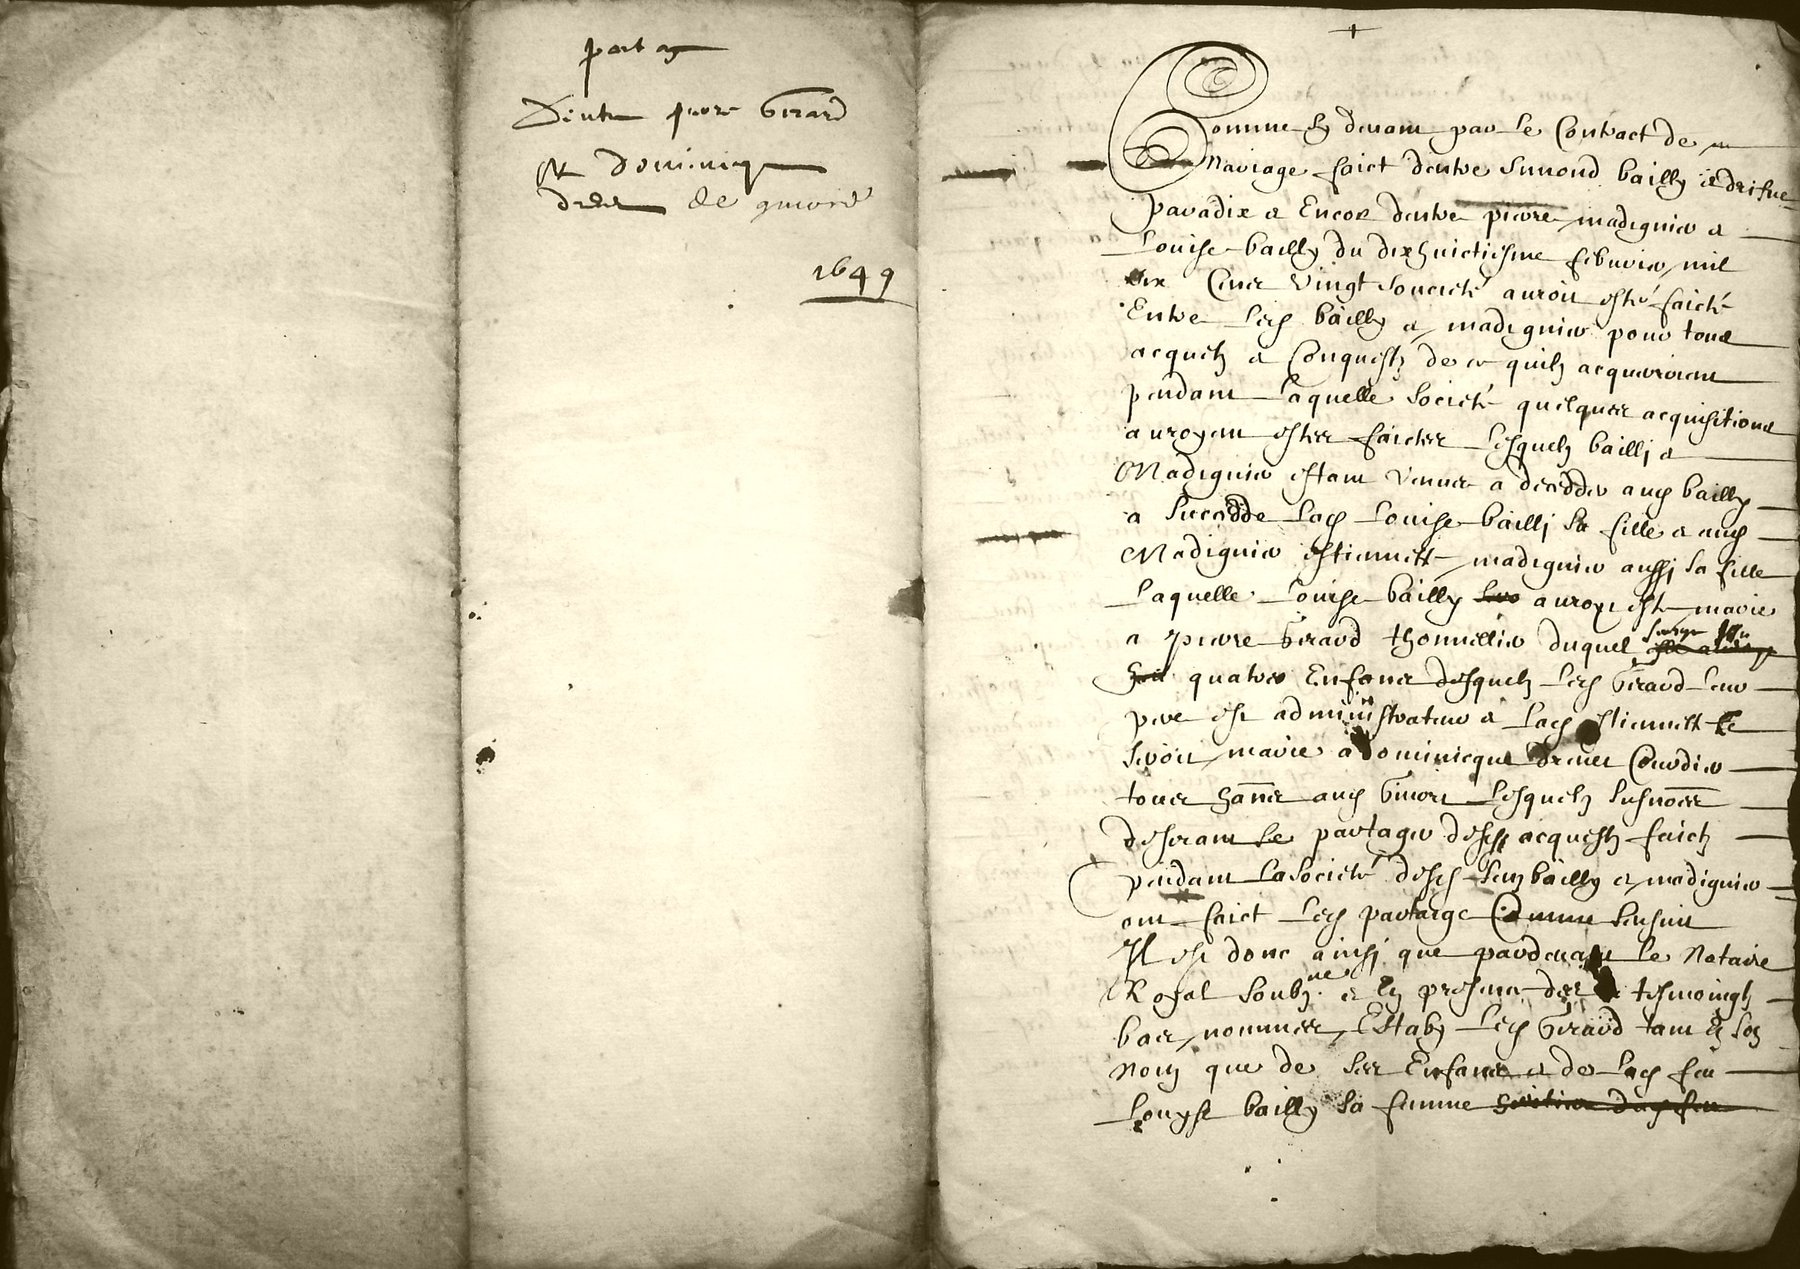 partag
Dentre pierre Girard
et Dominicq
drevet de Givord
1649
Comme cy devant par le Contract de
Mariage faict dentre Simond bailly et
paradix et Encor dentre pierre madignier et
Louise bailly du dixhuictiesme febvrier mil
six Cens vingt soucieté auroit esté faicté
Entre lesd bailly et madignier pour tous
acquetz et Conquestz de ce quilz acquerroient
pendant laquelle societé quelques acquisitions
auroyent estes faictes lesquelz bailli et
Madignier estant venus a decedder aud bailly
a succedde lad Louise bailli sa fille et aud
Madignier estiennette madignier aussi sa fille
Laquelle Louise bailly auroyt esté marie
a pierre Girard thonnellier duquel
quatres Enfans desquelz led Girard leur
pere est administrateur et lad estiennette se
seroit marie a dominicque drevet Cordier
tous aud Givort lesquelz
desirant se partager desd acquestz faictz
pendant la societé desd bailly et madignier
ont faict led partaige Comme sensuit
Il est donc ainsi que pardevant le Notaire
Royal soubz.ne et en presence des tesmoingtz
bas nommes Estably led Girard tant en son
nom que de ses Enfans et de lad feu
Louyse bailly sa femme